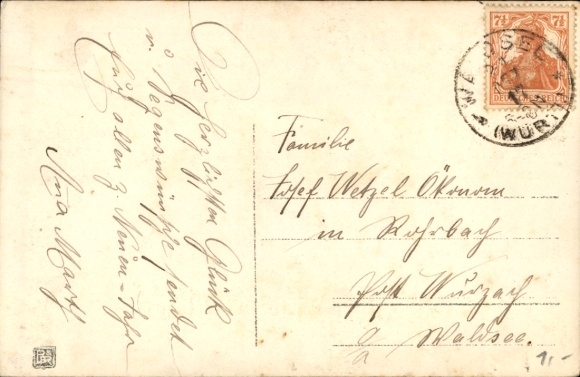 Die herzlichsten Glück
u. Segenswünsche sendet
Euch allen z. Neuen-Jahr
Anna
Familie
Josef Wetzel Ökonom
in Rohrbach
Post Wurzach
Waldsee.
7½ 7½
DEUTSCHES REICH
WALDSEE
(WÜRTT)
1,-